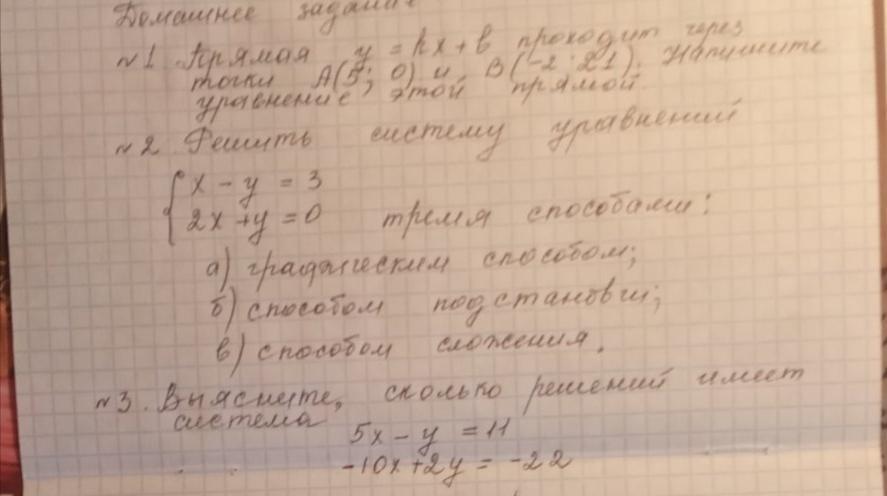 Домашнее задание
№1. Прямая y = kx + b проходит через
точки A(5; 0) и B(-2; 21). Напишите
уравнение этой прямой.
№2 Решить систему уравнений
x - y = 3
2x + y = 0 тремя способами:
а) графическим способом;
б) способом подстановки;
в) способом сложения.
№3. Выясните, сколько решений имеет
система
5x - y = 11
-10x + 2y = -22